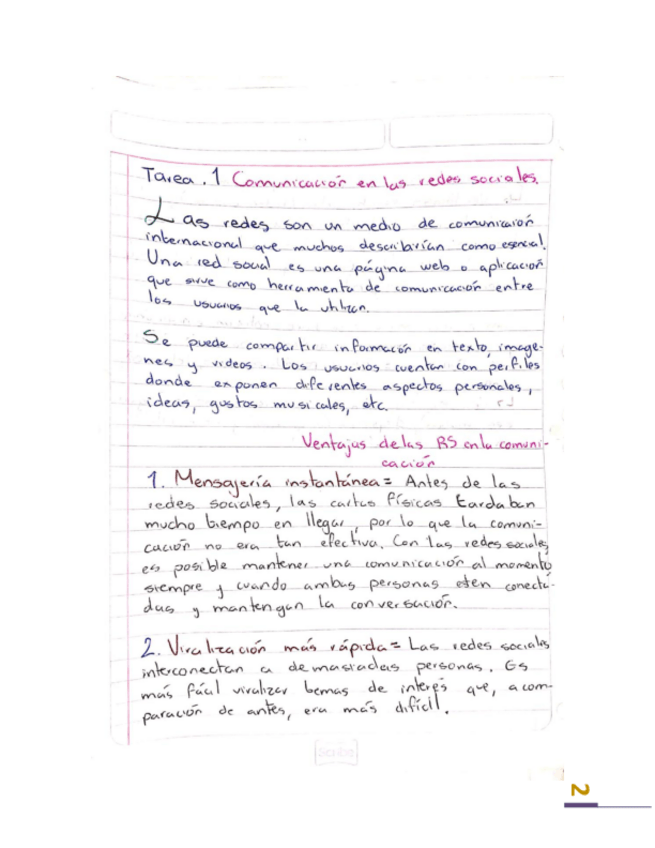 Tarea. 1 Comunicación en las redes sociales.
Las redes son un medio de comunicación
internacional que muchos describirían como esencial.
Una red social es una página web o aplicación
que sirve como herramienta de comunicación entre
los usuarios que la utilizan.
Se puede compartir información en texto, image-
nes y videos. Los usuarios cuentan con perfiles
donde exponen diferentes aspectos personales,
ideas, gustos musicales, etc.
Ventajas de las RS en la comuni-
cación
1. Mensajería instantánea= Antes de las
redes sociales, las cartas físicas tardaban
mucho tiempo en llegar, por lo que la comuni-
cación no era tan efectiva. Con las redes sociales,
es posible mantener una comunicación al momento
siempre y cuando ambas personas esten conecta-
das y mantengan la conversación.
2. Viralización más rápida= Las redes sociales
interconectan a demasiadas personas. Es
más fácil viralizar temas de interés que, a com-
paración de antes, era más difícil.
Scribe
2